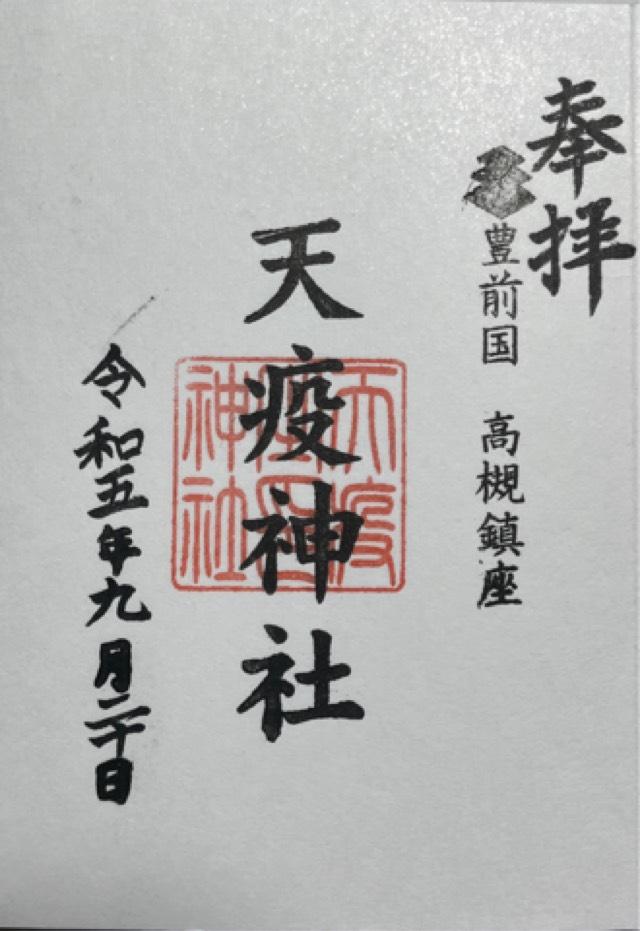 奉拝
豊前国 高槻鎮座
天疫神社
令和五年九月二十日